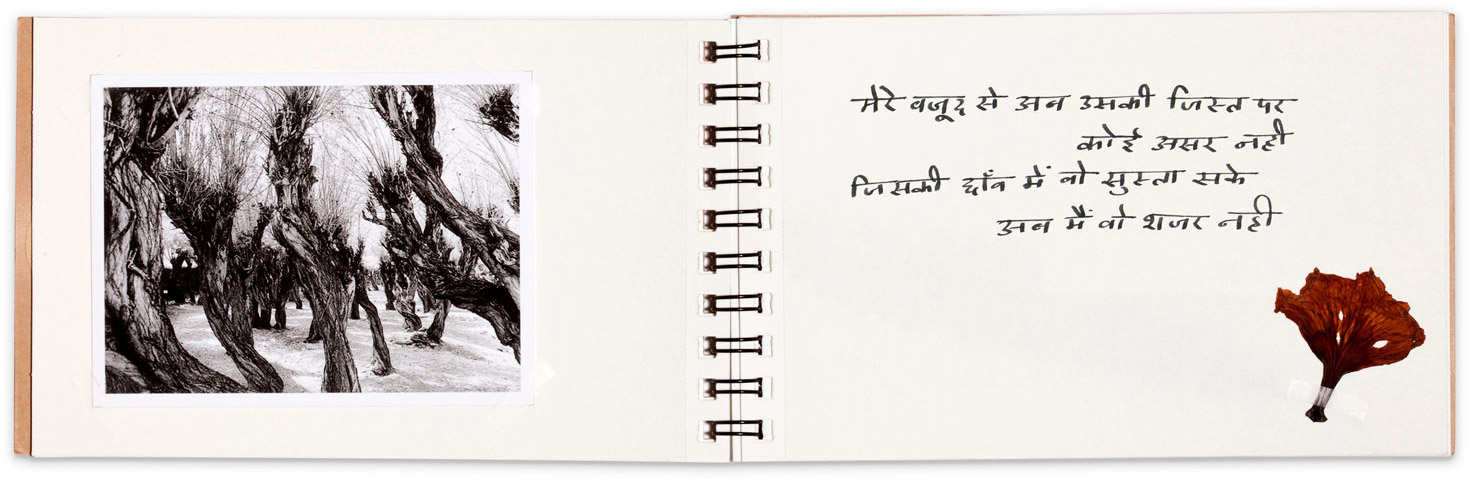 मेरे वजूद से अब उसकी जिस्त पर
कोई असर नही
जिसकी छाँव में वो सुस्ता सके
अब मैं वो शजर नही